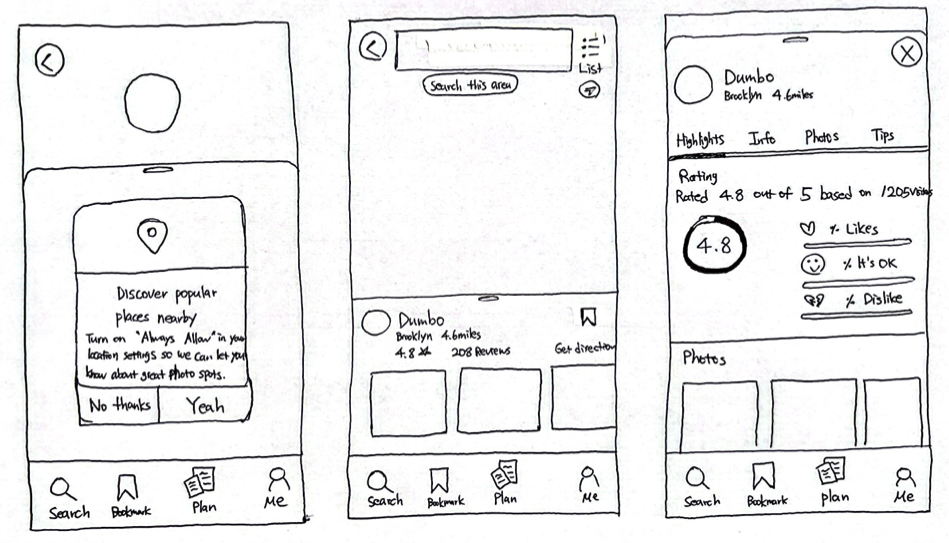 Discover popular
places nearby
Turn on "Always Allow" in your
location settings so we can let you
know about great photo spots.
No thanks
Yeah
Search
Bookmark
Plan
Me
List
Search this area
Dumbo
Brooklyn 4.6miles
4.8
208 Reviews
Get direction
Search
Bookmark
Plan
Me
Dumbo
Brooklyn 4.6miles
Highlights Info Photos Tips
Rating
Rated 4.8 out of 5 based on 1205 visitors
4.8
% Likes
% It's OK
% Dislike
Photos
Search
Bookmark
plan
Me